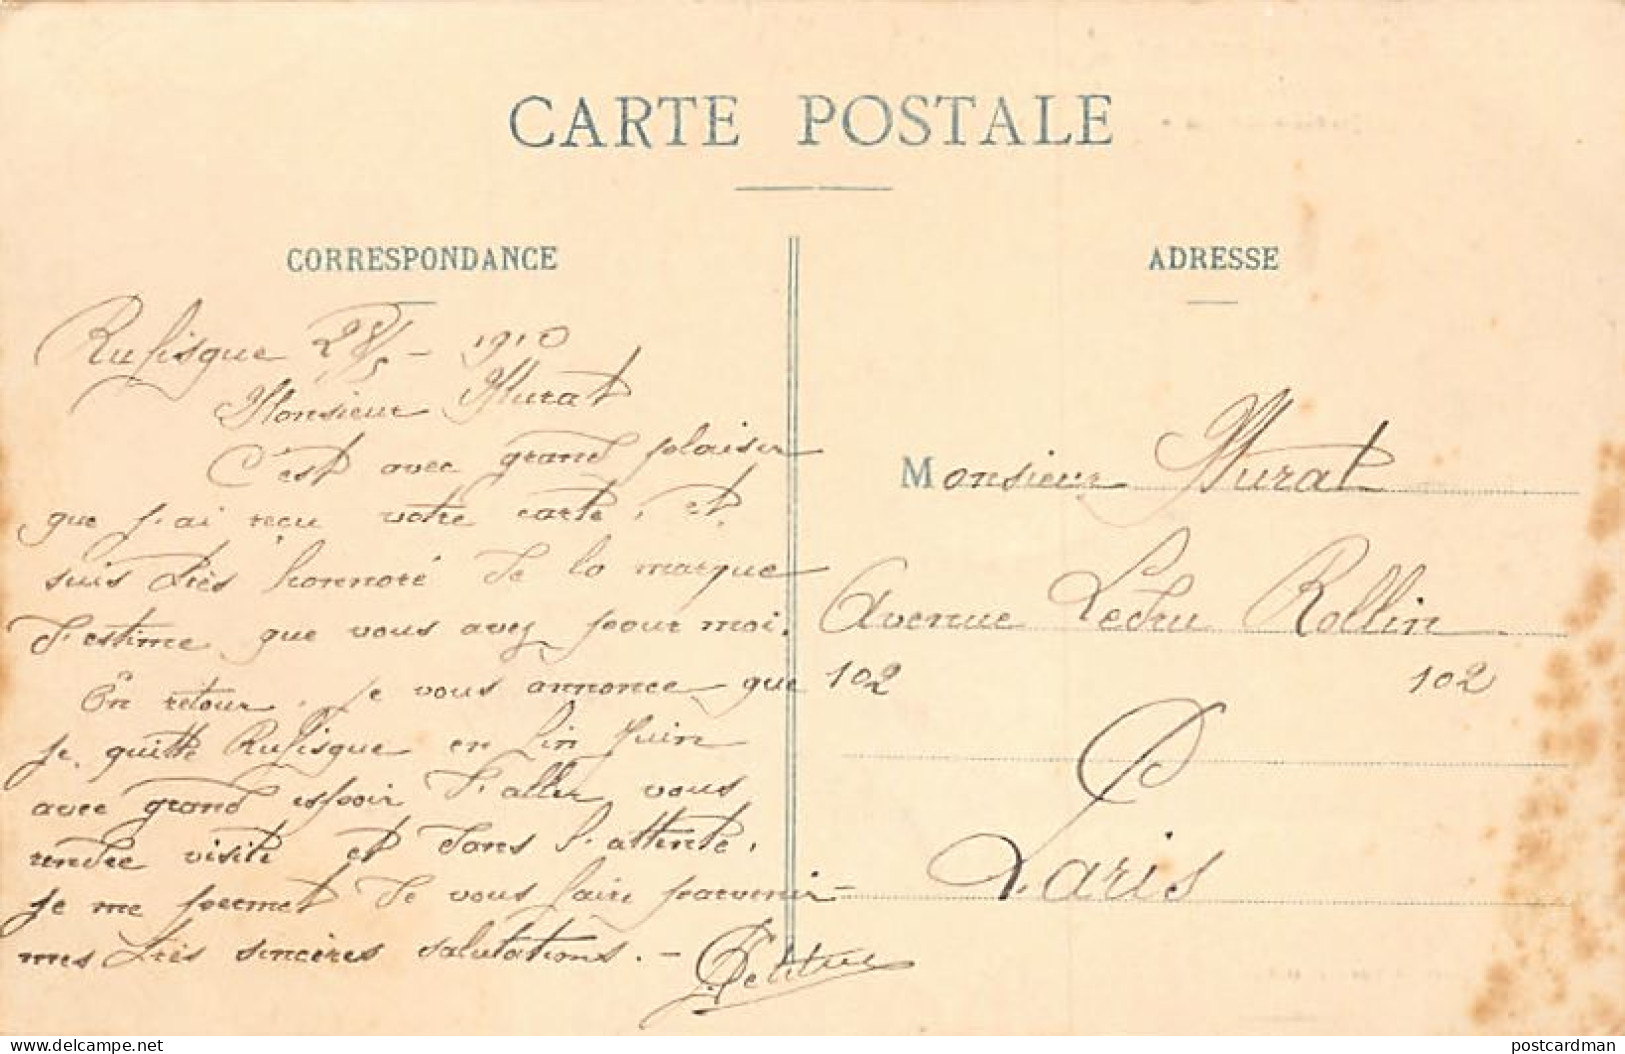 CARTE POSTALE
CORRESPONDANCE
Rufisque 28/5 - 1910
Monsieur Murat
C'est avec grand plaisir
que j'ai reçu votre carte, et
suis très honnoré de la marque
d'estime que vous avez pour moi.
En retour, je vous annonce que
je quitte Rufisque en fin Juin
avec grand espoir d'aller vous
rendre visite et dans l'attente,
je me permet de vous faire parvenir
mes très sincères salutations. -
ADRESSE
Monsieur Murat
Avenue Ledru Rollin
102 102
Paris
delcampe.net
postcardman